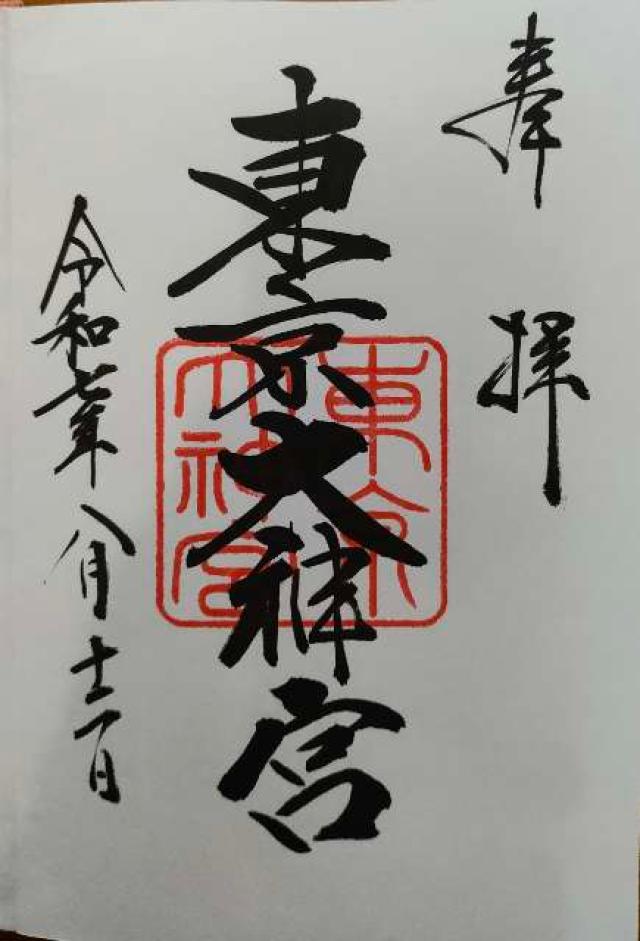 奉拝
東京大神宮
東京
大神宮
令和七年八月十二日